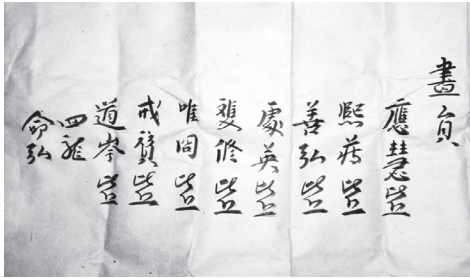 畫貟
應慧比丘
熈 比丘
善弘比丘
處英比丘
雙修比丘
唯 比丘
戒 比丘
道岑比丘
四龍
命弘